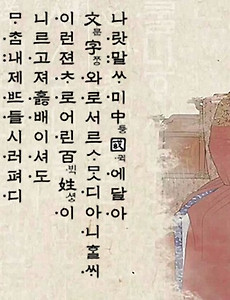 나랏말ᄊᆞ미中듕國귁에달아
文문字ᄍᆞᆼ와로서르ᄉᆞᄆᆞᆺ디아니ᄒᆞᆯᄊᆡ
이런젼ᄎᆞ로어린百ᄇᆡᆨ姓셩이
니르고져ᄒᆞᇙ배이셔도
ᄆᆞᄎᆞᆷ내제ᄠᅳ들시러펴디